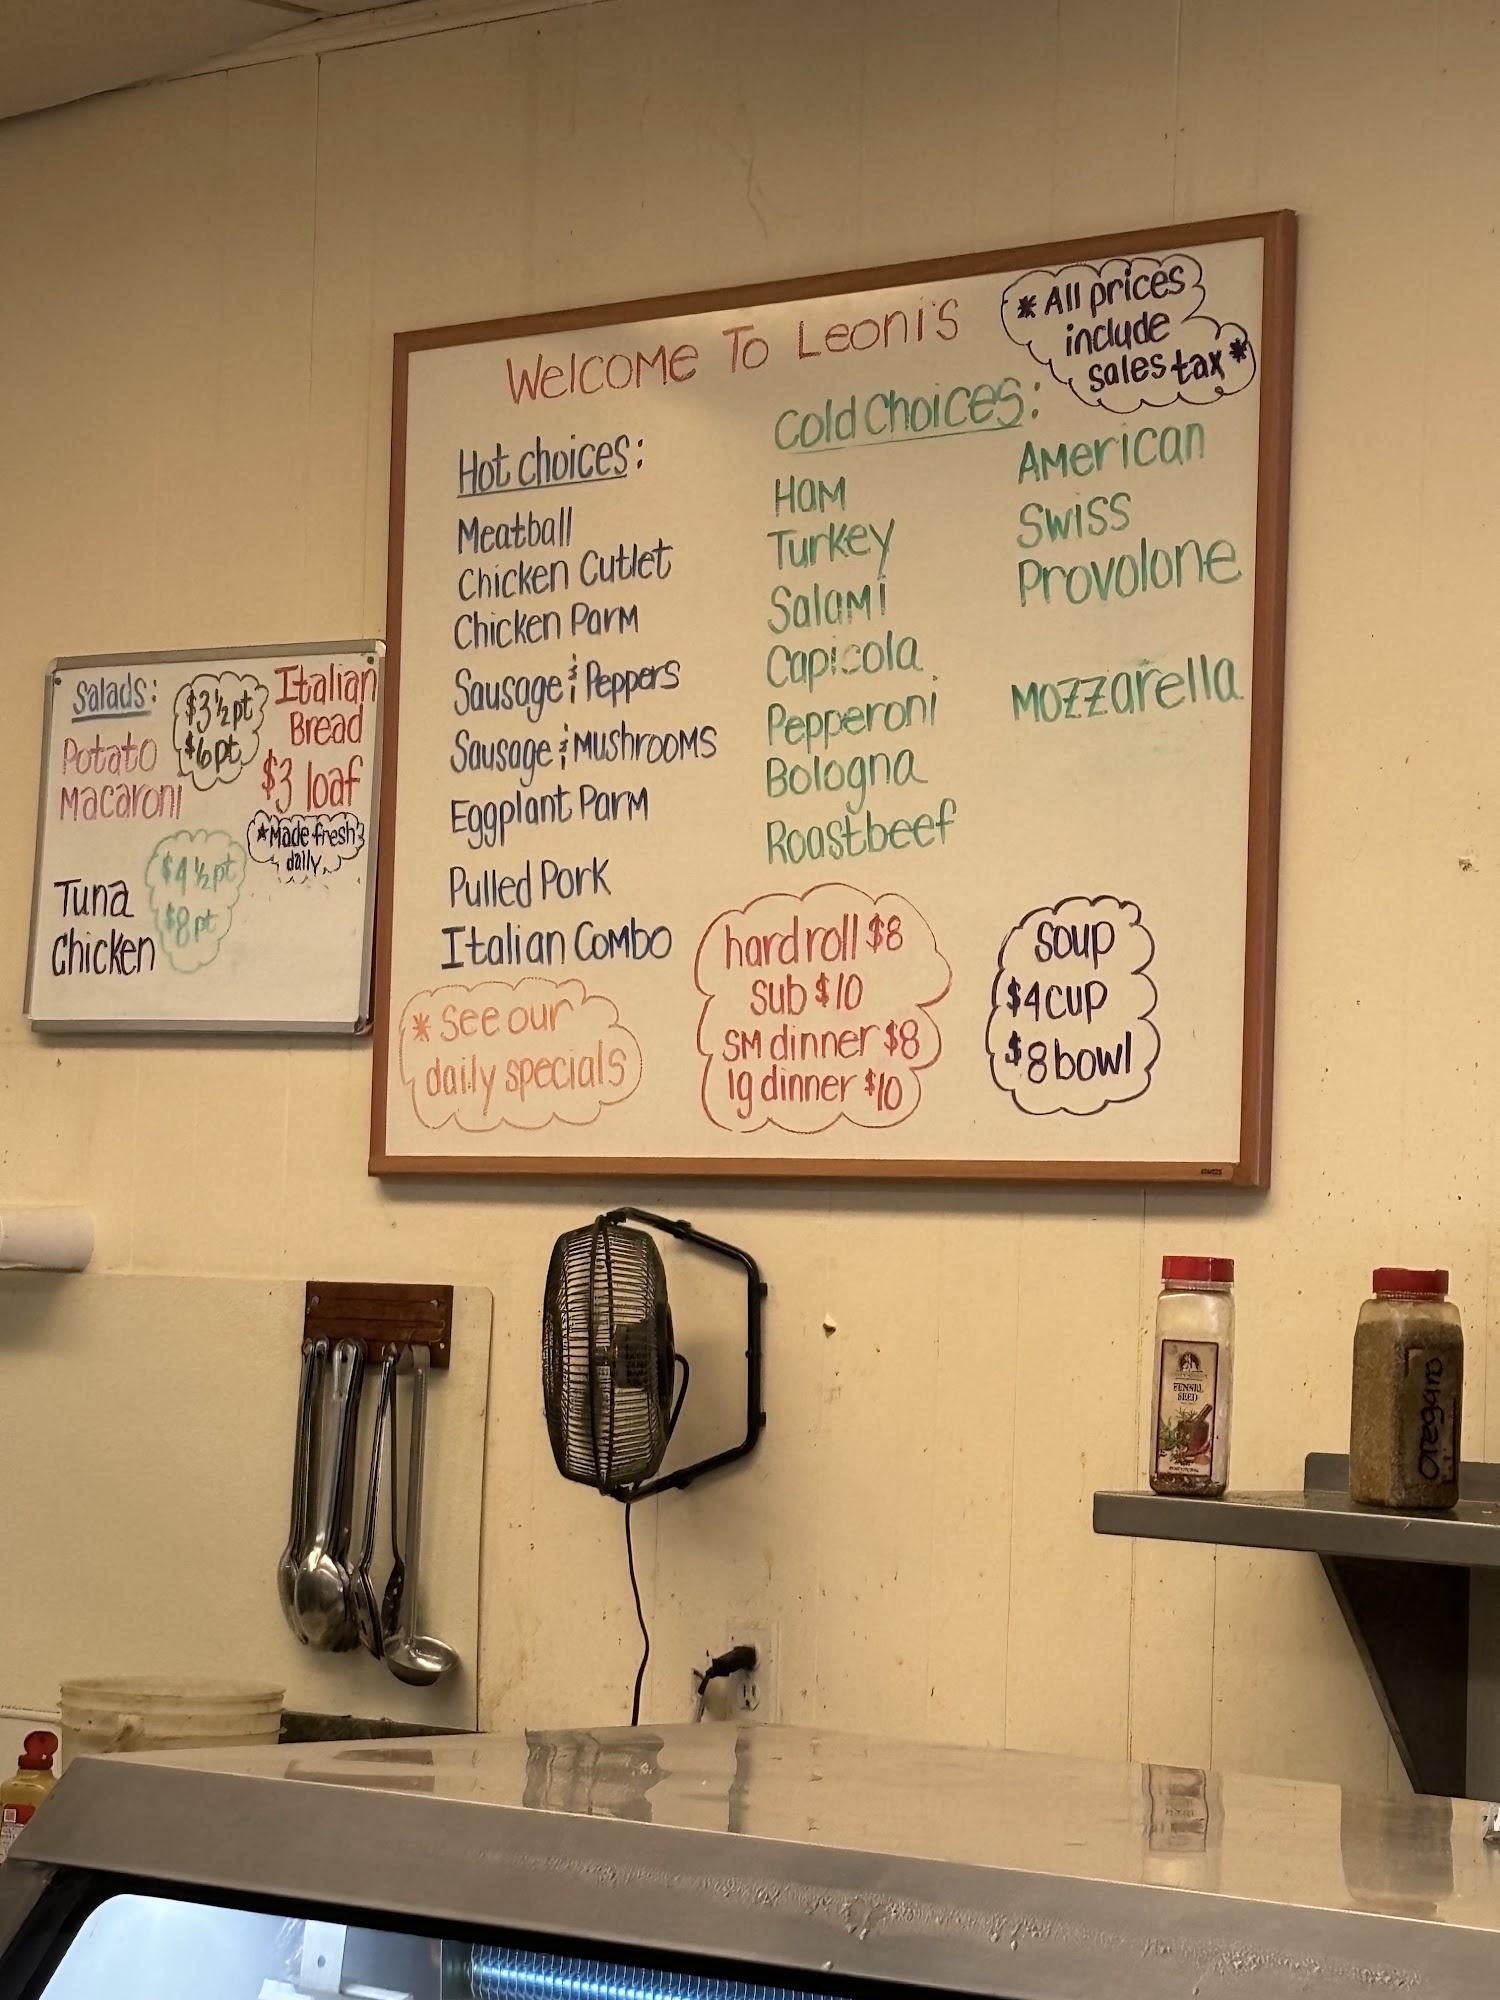 Welcome To Leoni's
* All prices
include
sales tax *
Hot choices:
Meatball
Chicken Cutlet
Chicken Parm
Sausage & Peppers
Sausage & Mushrooms
Eggplant Parm
Pulled Pork
Italian Combo
* see our
daily specials
Cold Choices:
Ham
Turkey
Salami
Capicola
Pepperoni
Bologna
Roastbeef
American
Swiss
Provolone
Mozzarella
hard roll $8
sub $10
SM dinner $8
lg dinner $10
soup
$4 cup
$8 bowl
Salads:
Potato
Macaroni
$3 ½ pt
$6 pt
Italian
Bread
$3 loaf
*Made fresh
daily
Tuna
Chicken
$4 ½ pt
$8 pt
FENNEL
SEED
Oregano